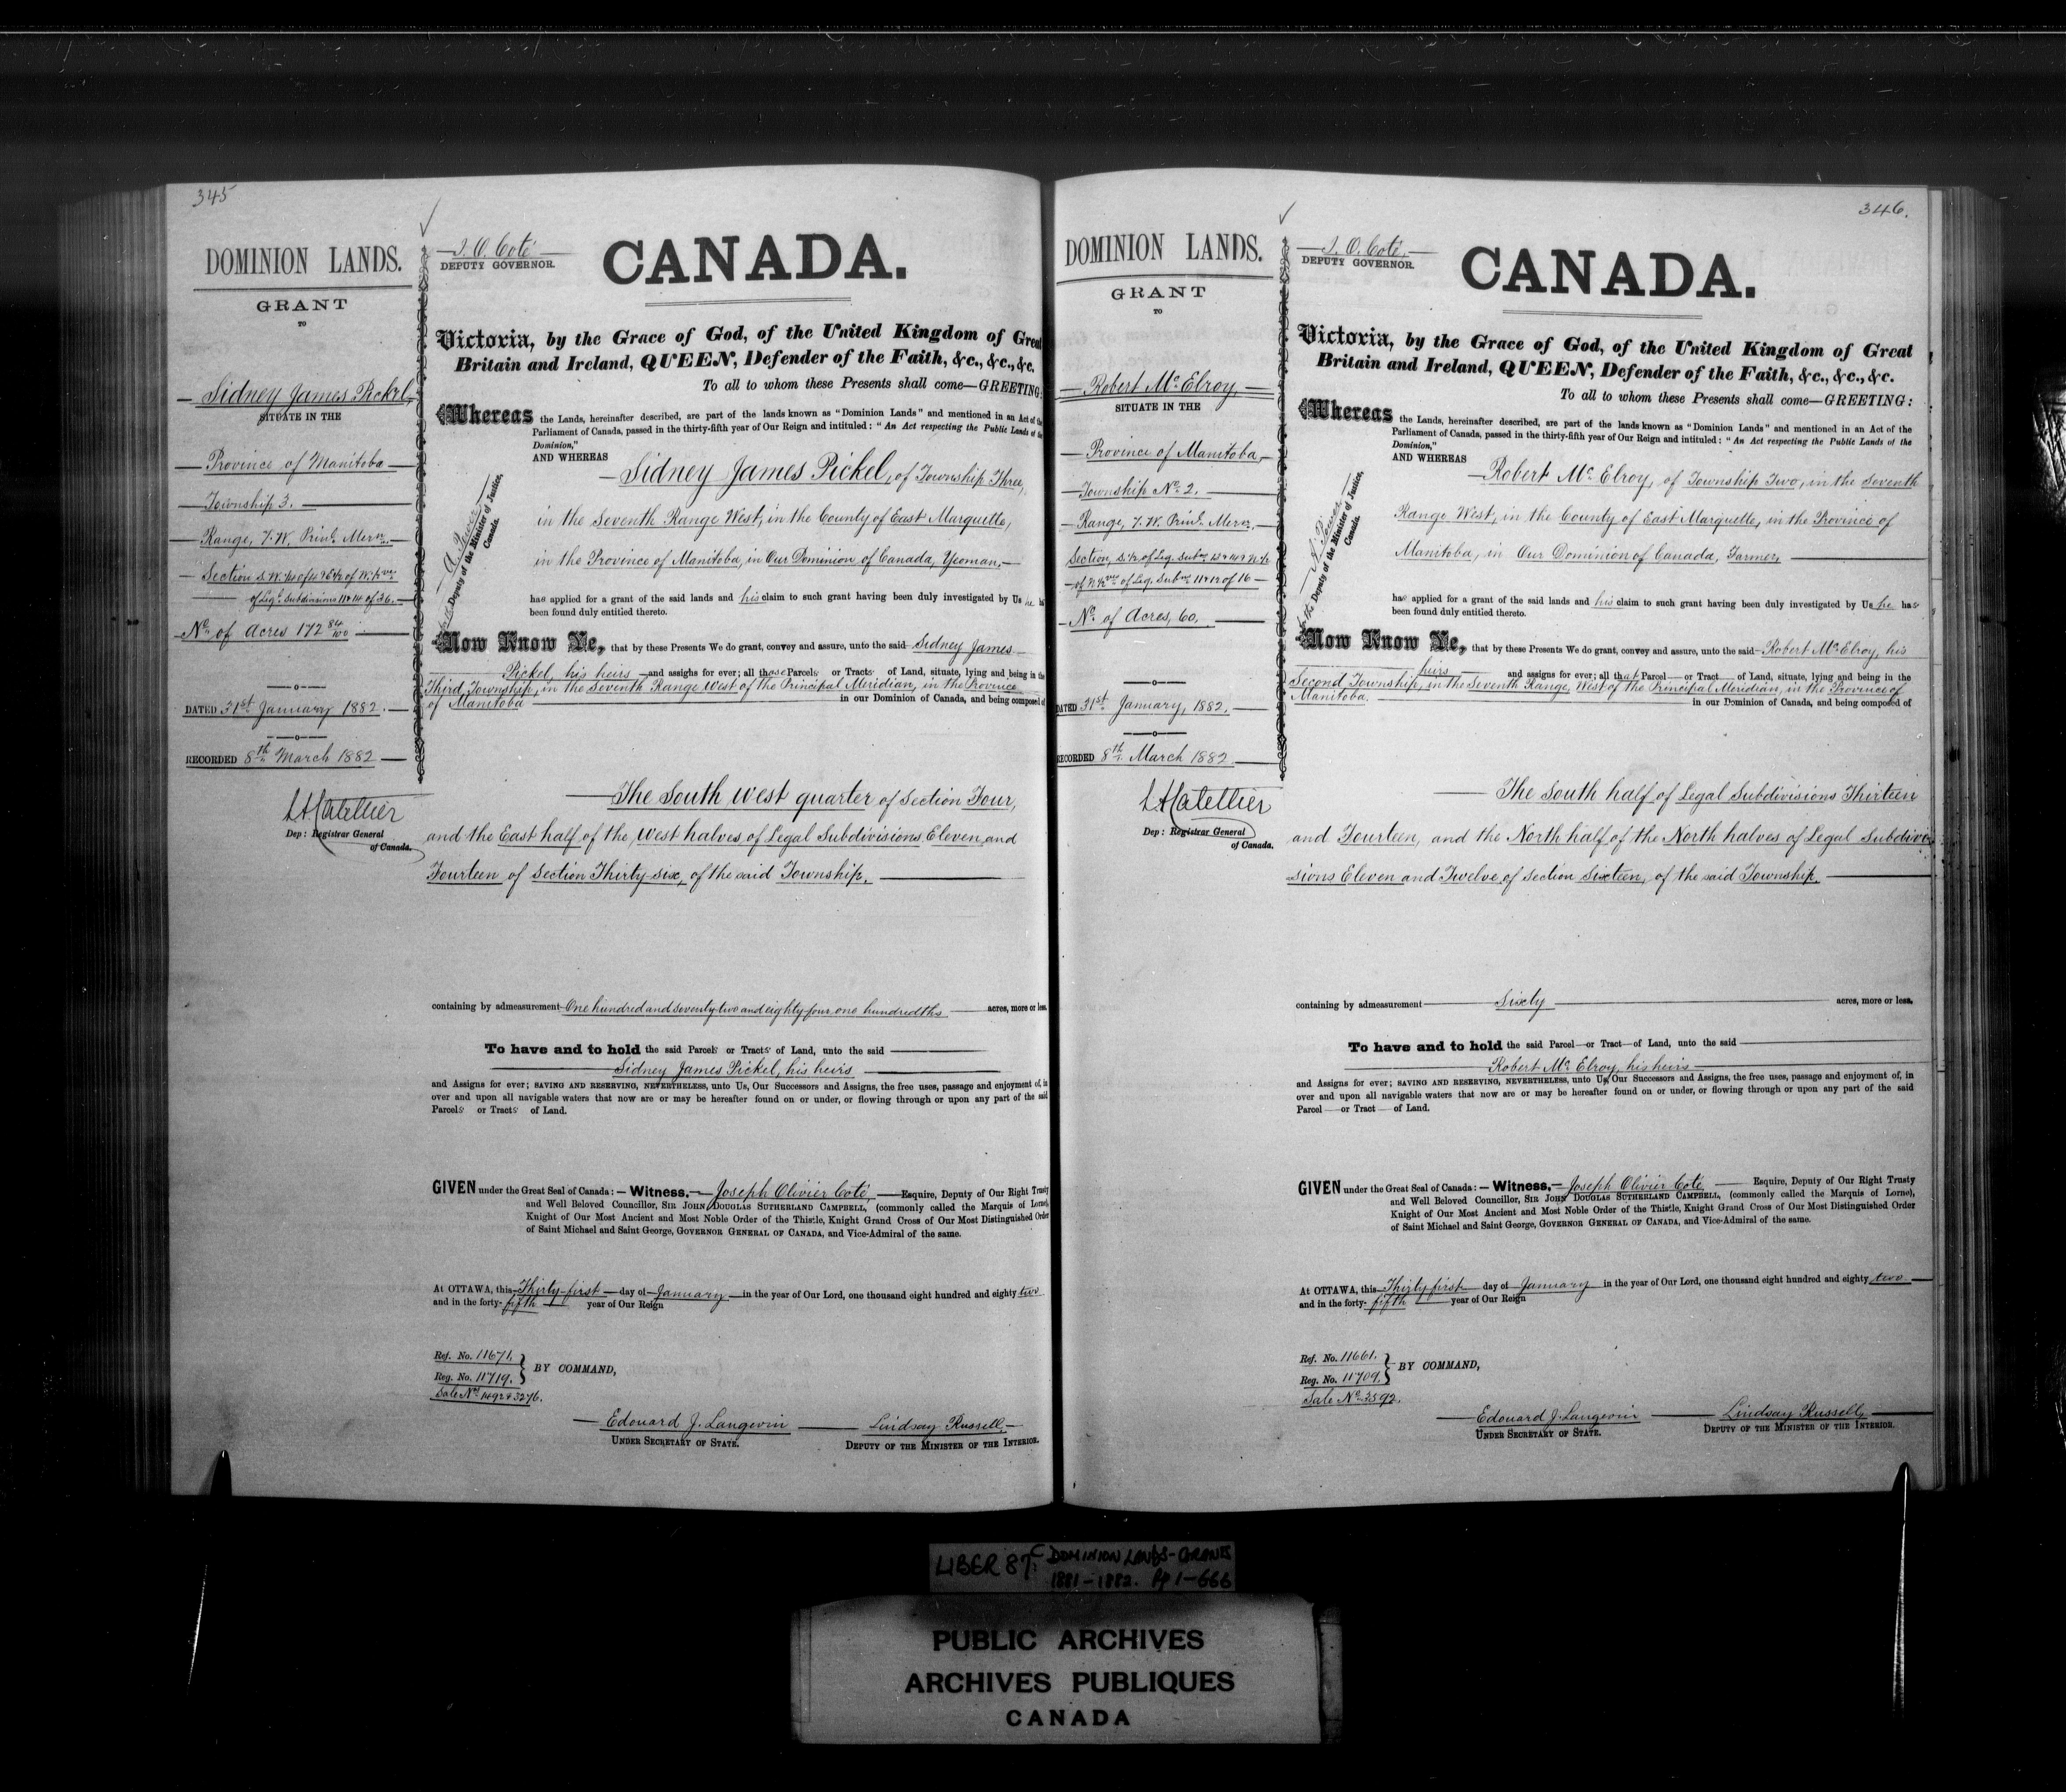 345
DOMINION LANDS.
GRANT
TO
Sidney James Pickel,
SITUATE IN THE
Province of Manitoba
Township 3.
Range, 7. W. Prinl. Mern.
Section S. W. 1/4 of 4 & E 1/2 of W. 1/2ves
of Legl. Subdivisions 11 & 14 of 36.
No. of Acres 172 84/100
DATED 31st January 1882.
RECORDED 8th March 1882
Dep: Registrar General
of Canada.
J. O. Coté
DEPUTY GOVERNOR.
CANADA.
Victoria, by the Grace of God, of the United Kingdom of Great
Britain and Ireland, QUEEN, Defender of the Faith, &c., &c., &c.
To all to whom these Presents shall come—GREETING:
Whereas the Lands, hereinafter described, are part of the lands known as "Dominion Lands" and mentioned in an Act of the
Parliament of Canada, passed in the thirty-fifth year of Our Reign and intituled: "An Act respecting the Public Lands of the
Dominion,"
AND WHEREAS Sidney James Pickel, of Township Three,
in the Seventh Range West, in the County of East Marquette,
in the Province of Manitoba, in Our Dominion of Canada, Yeoman,
has applied for a grant of the said lands and his claim to such grant having been duly investigated by Us he has
been found duly entitled thereto.
A. Power
for the Deputy of the Minister of Justice,
Canada.
Now Know Ye, that by these Presents We do grant, convey and assure, unto the said Sidney James
Pickel, his heirs and assigns for ever; all those Parcels or Tracts of Land, situate, lying and being in the
Third Township, in the Seventh Range West of the Principal Meridian, in the Province
of Manitoba in our Dominion of Canada, and being composed of
The South west quarter of Section Four,
and the East half of the West halves of Legal Subdivisions Eleven and
Fourteen of Section Thirty-six, of the said Township.
containing by admeasurement One hundred and seventy-two and eighty four one hundredths acres, more or less.
To have and to hold the said Parcels or Tracts of Land, unto the said
Sidney James Pickel, his heirs
and Assigns for ever; SAVING AND RESERVING, NEVERTHELESS, unto Us, Our Successors and Assigns, the free uses, passage and enjoyment of, in
over and upon all navigable waters that now are or may be hereafter found on or under, or flowing through or upon any part of the said
Parcels or Tracts of Land.
GIVEN under the Great Seal of Canada: — Witness.— Joseph Olivier Coté, Esquire, Deputy of Our Right Trusty
and Well Beloved Councillor, SIR JOHN DOUGLAS SUTHERLAND CAMPBELL, (commonly called the Marquis of Lorne),
Knight of Our Most Ancient and Most Noble Order of the Thistle, Knight Grand Cross of Our Most Distinguished Order
of Saint Michael and Saint George, GOVERNOR GENERAL OF CANADA, and Vice-Admiral of the same.
At OTTAWA, this Thirty-first day of January in the year of Our Lord, one thousand eight hundred and eighty two
and in the forty-fifth year of Our Reign
Ref. No. 11671.
Reg. No. 11719.
BY COMMAND,
Sale Nos. 1492 & 3276.
Edouard J. Langevin
UNDER SECRETARY OF STATE.
Lindsay Russell,
DEPUTY OF THE MINISTER OF THE INTERIOR.
346.
DOMINION LANDS.
GRANT
TO
Robert McElroy,
SITUATE IN THE
Province of Manitoba,
Township No. 2.
Range, 7. W. Prinl. Mern.
Section, S. 1/2 of Leg. Subns. 13 & 14 & N 1/2
of N 1/2ves of Leg. Subns. 11 & 12 of 16
No. of Acres, 60.
DATED 31st January, 1882.
RECORDED 8th March 1882
Dep: Registrar General
of Canada.
J. O. Coté,
DEPUTY GOVERNOR.
CANADA.
Victoria, by the Grace of God, of the United Kingdom of Great
Britain and Ireland, QUEEN, Defender of the Faith, &c., &c., &c.
To all to whom these Presents shall come—GREETING:
Whereas the Lands, hereinafter described, are part of the lands known as "Dominion Lands" and mentioned in an Act of the
Parliament of Canada, passed in the thirty-fifth year of Our Reign and intituled: "An Act respecting the Public Lands of the
Dominion,"
AND WHEREAS Robert McElroy, of Township Two, in the Seventh
Range West, in the County of East Marquette, in the Province of
Manitoba, in Our Dominion of Canada, Farmer,
has applied for a grant of the said lands and his claim to such grant having been duly investigated by Us he has
been found duly entitled thereto.
A. Power
for the Deputy of the Minister of Justice,
Canada.
Now Know Ye, that by these Presents We do grant, convey and assure, unto the said Robert McElroy, his
heirs and assigns for ever; all that Parcel or Tract of Land, situate, lying and being in the
Second Township, in the Seventh Range, West of the Principal Meridian, in the Province of
Manitoba. in our Dominion of Canada, and being composed of
The South half of Legal Subdivisions Thirteen
and Fourteen, and the North half of the North halves of Legal Subdivi-
sions Eleven and Twelve, of Section Sixteen, of the said Township.
containing by admeasurement Sixty acres, more or less.
To have and to hold the said Parcel or Tract of Land, unto the said
Robert McElroy, his heirs
and Assigns for ever; SAVING AND RESERVING, NEVERTHELESS, unto Us, Our Successors and Assigns, the free uses, passage and enjoyment of, in
over and upon all navigable waters that now are or may be hereafter found on or under, or flowing through or upon any part of the said
Parcel or Tract of Land.
GIVEN under the Great Seal of Canada: — Witness.— Joseph Olivier Coté Esquire, Deputy of Our Right Trusty
and Well Beloved Councillor, SIR JOHN DOUGLAS SUTHERLAND CAMPBELL, (commonly called the Marquis of Lorne),
Knight of Our Most Ancient and Most Noble Order of the Thistle, Knight Grand Cross of Our Most Distinguished Order
of Saint Michael and Saint George, GOVERNOR GENERAL OF CANADA, and Vice-Admiral of the same.
At OTTAWA, this Thirty first day of January in the year of Our Lord, one thousand eight hundred and eighty two
and in the forty-fifth year of Our Reign
Ref. No. 11661.
Reg. No. 11709.
BY COMMAND,
Sale No. 3592.
Edouard J. Langevin
UNDER SECRETARY OF STATE.
Lindsay Russell,
DEPUTY OF THE MINISTER OF THE INTERIOR.
LIBER 87C DOMINION LANDS-GRANTS
1881-1882. Pp 1-666
PUBLIC ARCHIVES
ARCHIVES PUBLIQUES
CANADA